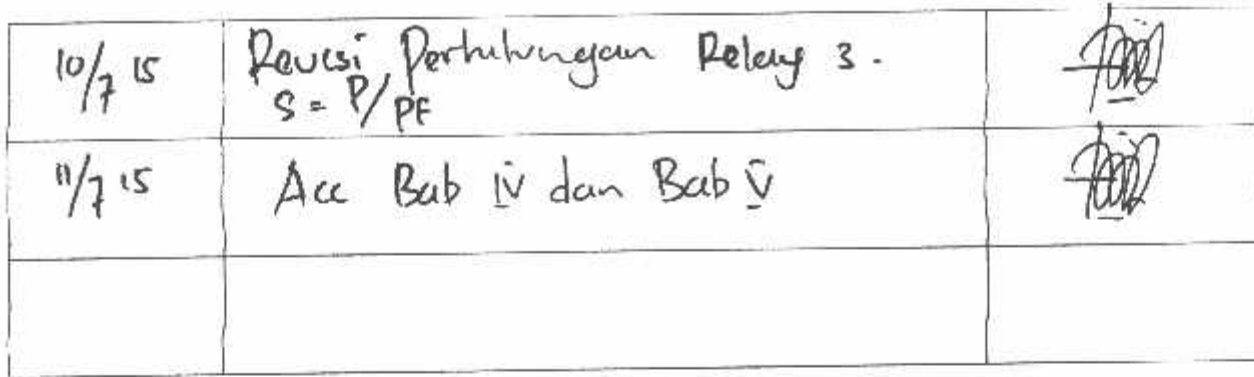 10/7 15
Revisi Perhitungan Relay 3.
S = P/PF
11/7 15
Acc Bab IV dan Bab V